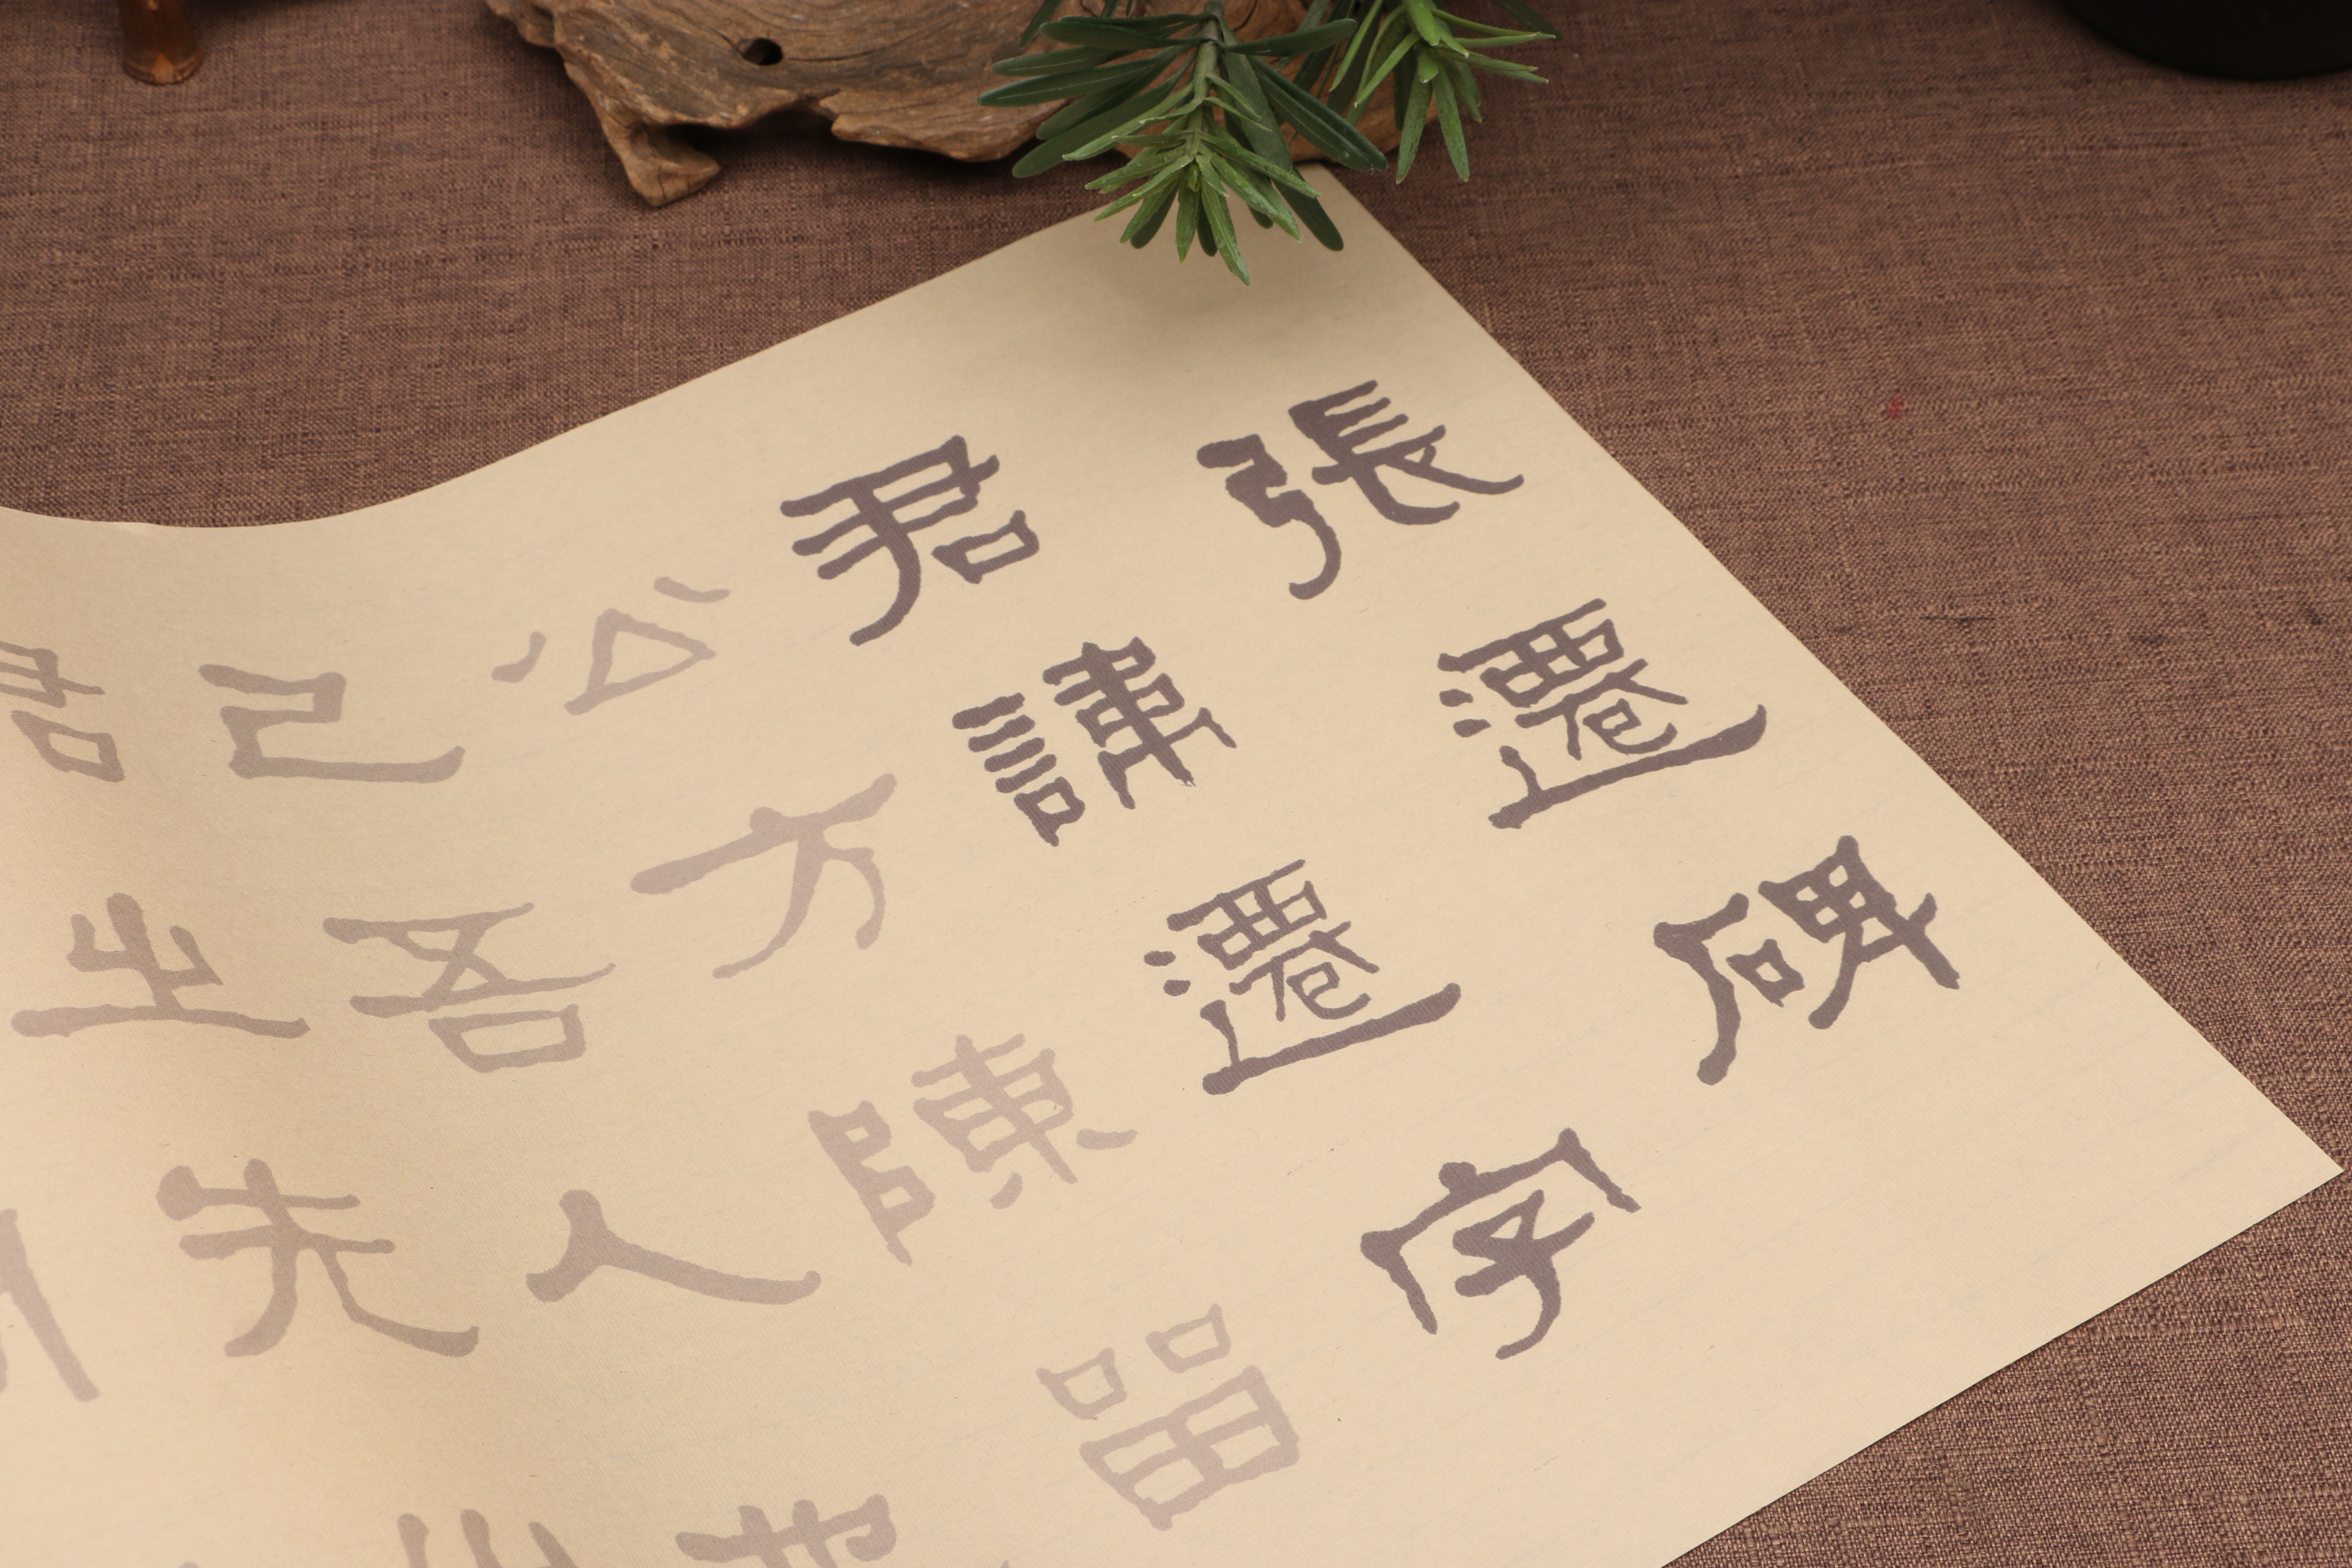 張遷碑
君諱遷字
公方陳留
己吾人
君之先